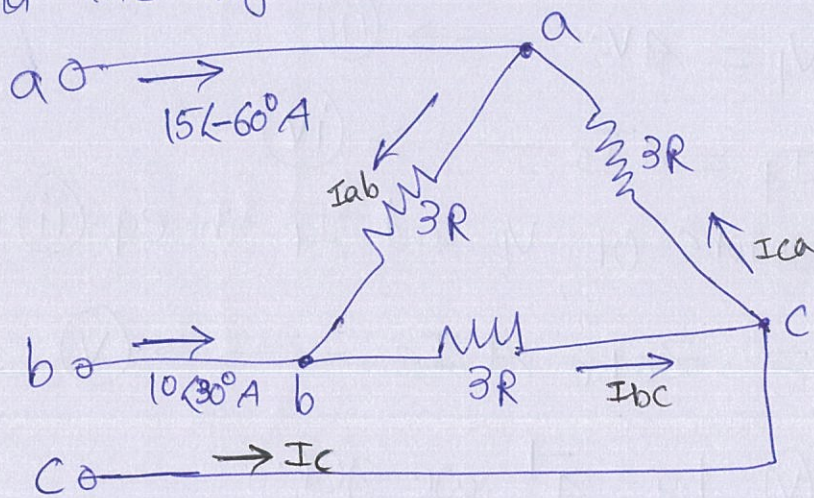 a
a
15<-60° A
Iab
3R
3R
Ica
b
10<30° A
b
3R
Ibc
c
c
Ic